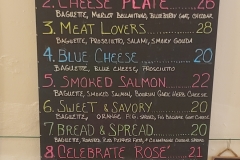 2. CHEESE PLATE... 26
BAGUETTE, MERLOT BELLAVITANO, BLUEBERRY GOAT, CHEDDAR
3. MEAT LOVERS... 28
BAGUETTE, PROSCIUTTO, SALAMI, SMOKY GOUDA
4. BLUE CHEESE... 20
BAGUETTE, BLUE CHEESE, PROSCIUTTO
5. SMOKED SALMON... 22
BAGUETTE, SMOKED SALMON, BOURSIN GARLIC HERB CHEESE
6. SWEET & SAVORY... 20
BAGUETTE, ORANGE FIG SPREAD, GOAT CHEESE
7. BREAD & SPREAD... 20
BAGUETTE, ROASTED RED PEPPER
8 CELEBRATE ROSÉ!